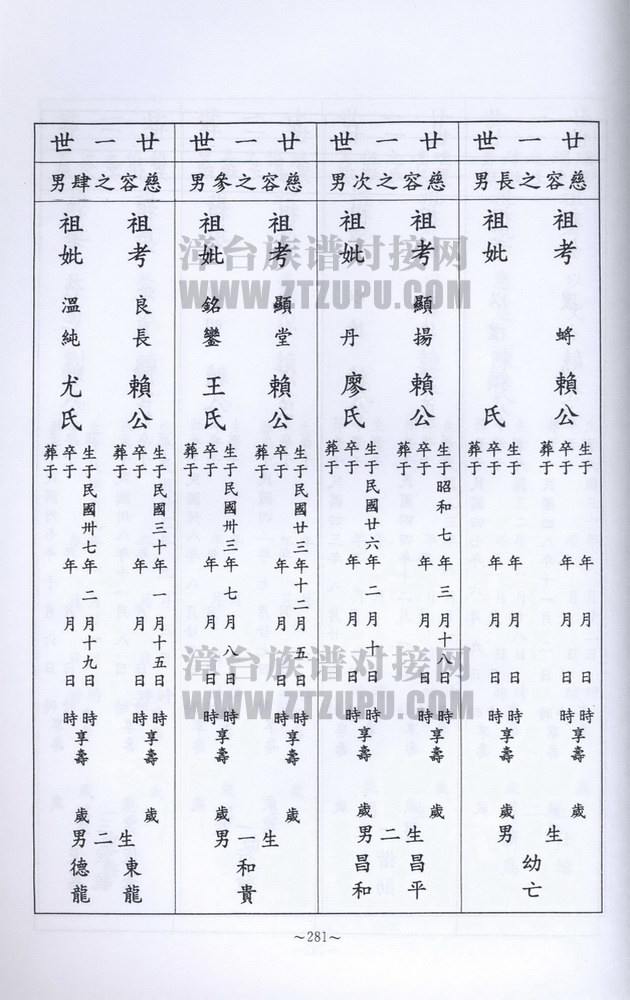 廿一世
慈容之長男
祖考 蛴 賴公
生于 年 月 日 時享壽 歲
卒于 年 月 日 時
葬于
祖妣 氏
生于 年 月 日 時享壽 歲
卒于 年 月 日 時
葬于
生 男
幼亡
廿一世
慈容之次男
祖考 顯揚 賴公
生于昭和七年三月十八日 時享壽 歲
卒于 年 月 日 時
葬于
祖妣 丹 廖氏
生于民國廿六年二月十日 時享壽 歲
卒于 年 月 日 時
葬于
生二男
昌平
昌和
廿一世
慈容之參男
祖考 顯堂 賴公
生于民國廿三年十二月五日 時享壽 歲
卒于 年 月 日 時
葬于
祖妣 銘鑾 王氏
生于民國卅三年七月八日 時享壽 歲
卒于 年 月 日 時
葬于
生一男
和貴
廿一世
慈容之肆男
祖考 良長 賴公
生于民國三十年一月十五日 時享壽 歲
卒于 年 月 日 時
葬于
祖妣 溫純 尤氏
生于民國卅七年二月十九日 時享壽 歲
卒于 年 月 日 時
葬于
生二男
東龍
德龍
～281～
漳台族谱对接网
WWW.ZTZUPU.COM
漳台族谱对接网
WWW.ZTZUPU.COM